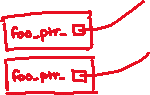 foo_ptr_
foo_ptr_